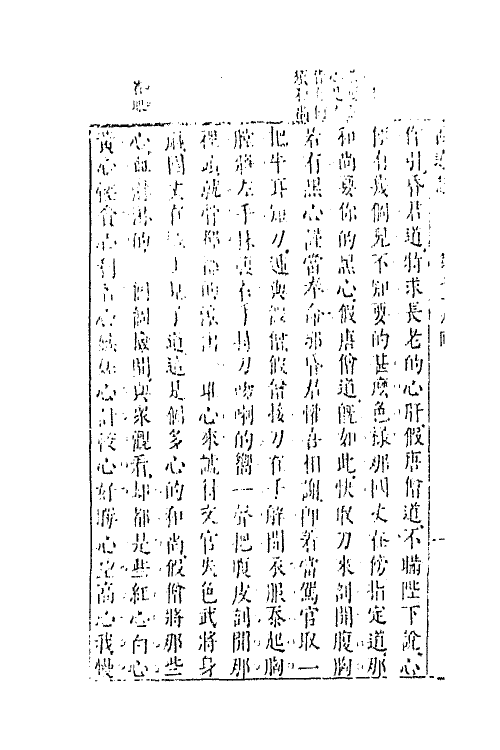 作引昏君道特求長老的心肝假唐僧道不瞞陛下說心
便有幾個兒不知要的甚麽色樣那國丈在傍指定道那
和尚要你的黑心假唐僧道旣如此快取刀來剖開腹胸
若有黑心謹當奉命那昏君懽喜相謝卽着當駕官取一
把牛耳短刀遞與假僧假僧接刀在手解開衣服忝起胸
膛將左手抹腹右手持刀唿喇的響一聲把腹皮剖開那
裡頭就骨都都的滾出一堆心來諕得文官失色武將身
麻國丈在殿上見了道這是個多心的和尚假僧將那些
心血淋淋的一個個撿開與衆觀看却都是些紅心白心
黃心慳貪心利名心嫉妬心計較心好勝心望高心我慢